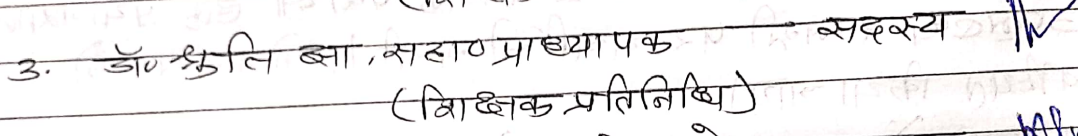 3. डॉ० श्रुति झा, सहा० प्राध्यापक सदस्य
(शिक्षक प्रतिनिधि)